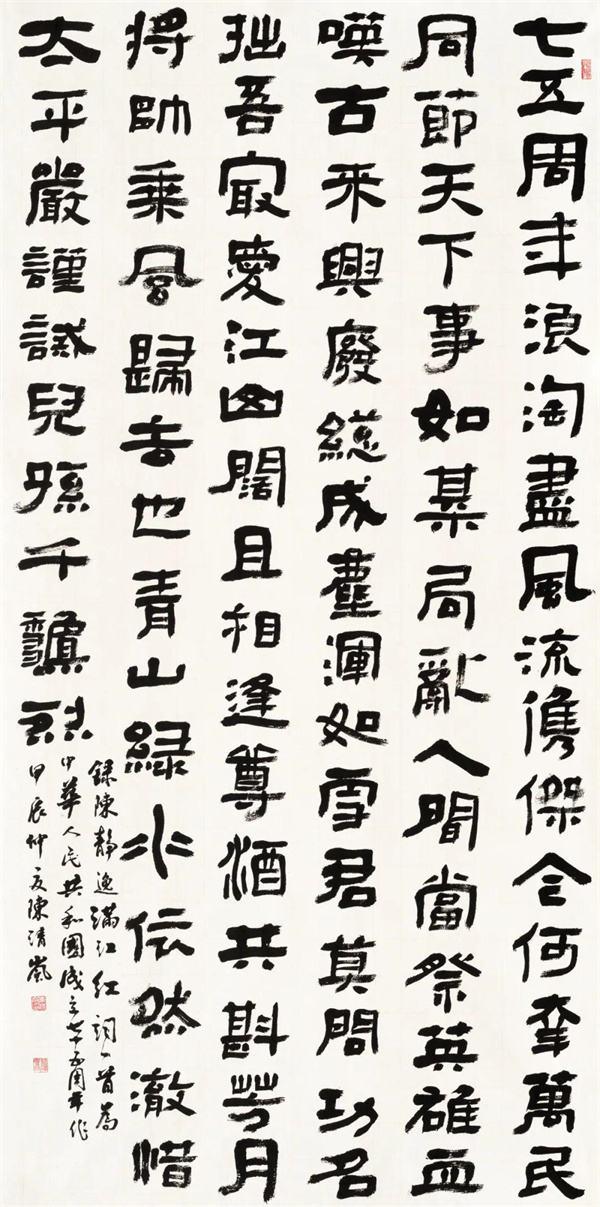 七五周年浪淘盡風流儁傑今何幸萬民
同節天下事如棊局亂人間當祭英雄血
嘆古來興廢總成塵渾如雪君莫問功名
拙吾最愛江山闊且相逢尊酒共斟芳月
將帥乘風歸去也青山綠水依然澈惜
太平嚴謹誡兒孫千烈
錄陳靜逸滿江紅詞一首為
中華人民共和國成立七十五周年作
甲辰仲夏陳清嵐